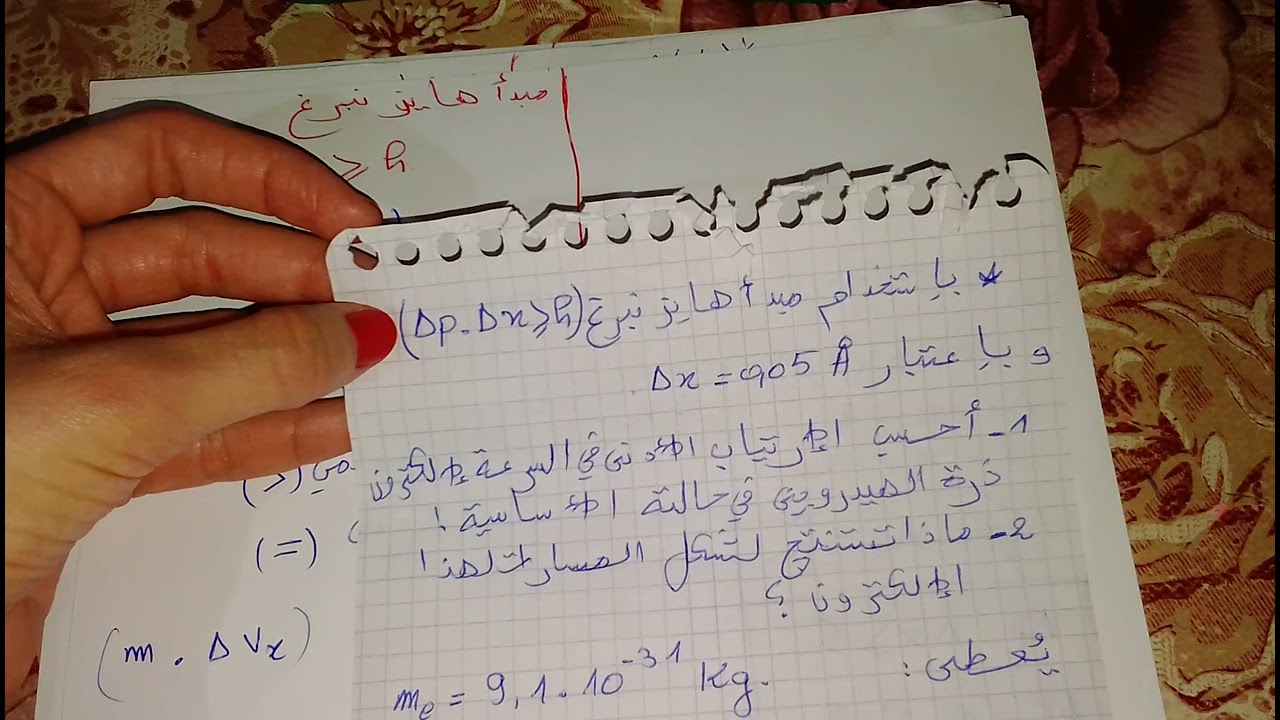 مبدأ هايزنبرغ
≥ ℏ
* باستخدام مبدأ هايزنبرغ (Δp.Δx≥ℏ)
و باعتبار Δx = 0,05 Å
1- أحسب الإرتياب الأدنى في السرعة لإلكترون
ذرة الهيدروجين في حالته الأساسية !
2- ماذا تستنتج لشكل المسارات لهذا
الإلكترون ؟
يُعطى :
mₑ = 9,1.10⁻³¹ Kg.
(>)
(=)
(m . ΔVx)